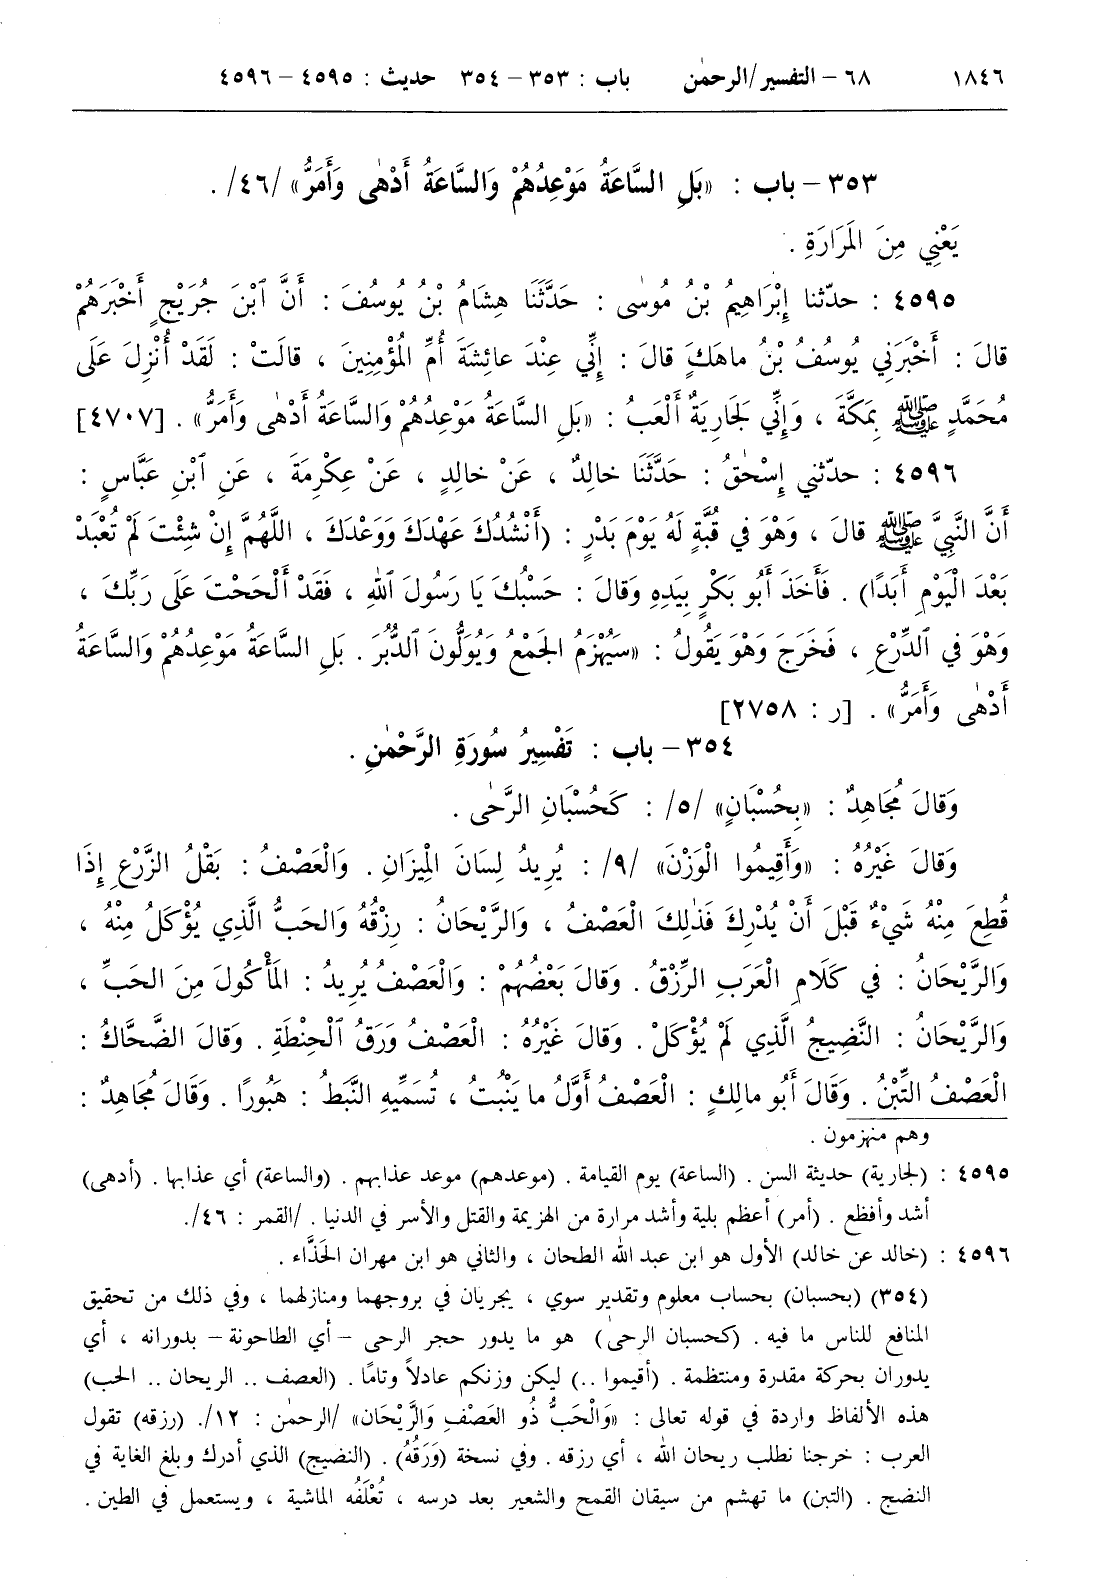 ١٨٤٦ ٦٨ – التفسير/الرحمٰن باب : ٣٥٣ – ٣٥٤ حديث : ٤٥٩٥ – ٤٥٩٦
٣٥٣ – باب : «بَلِ السَّاعَةُ مَوْعِدُهُمْ وَالسَّاعَةُ أَدْهٰى وَأَمَرُّ» /٤٦/ .
يَعْنِي مِنَ المَرَارَةِ .
٤٥٩٥ : حدّثنا إِبْرَاهِيمُ بْنُ مُوسٰى : حَدَّثَنَا هِشَامُ بْنُ يُوسُفَ : أَنَّ ٱبْنَ جُرَيْجٍ أَخْبَرَهُمْ
قالَ : أَخْبَرَنِي يُوسُفُ بْنُ ماهَكٍ قالَ : إِنِّي عِنْدَ عائِشَةَ أُمِّ المُؤْمِنِينَ ، قالَتْ : لَقَدْ أُنْزِلَ عَلَى
مُحَمَّدٍ ﷺ بِمَكَّةَ ، وَإِنِّي لَجَارِيَةٌ أَلْعَبُ : «بَلِ السَّاعَةُ مَوْعِدُهُمْ وَالسَّاعَةُ أَدْهٰى وَأَمَرُّ» . [٤٧٠٧]
٤٥٩٦ : حدّثني إِسْحٰقُ : حَدَّثَنَا خالِدٌ ، عَنْ خالِدٍ ، عَنْ عِكْرِمَةَ ، عَنِ ٱبْنِ عَبَّاسٍ :
أَنَّ النَّبِيَّ ﷺ قالَ ، وَهْوَ في قُبَّةٍ لَهُ يَوْمَ بَدْرٍ : (أَنْشُدُكَ عَهْدَكَ وَوَعْدَكَ ، اللَّهُمَّ إِنْ شِئْتَ لَمْ تُعْبَدْ
بَعْدَ الْيَوْمِ أَبَدًا) . فَأَخَذَ أَبُو بَكْرٍ بِيَدِهِ وَقالَ : حَسْبُكَ يَا رَسُولَ ٱللهِ ، فَقَدْ أَلْحَحْتَ عَلَى رَبِّكَ ،
وَهْوَ في ٱلدِّرْعِ ، فَخَرَجَ وَهْوَ يَقُولُ : «سَيُهْزَمُ الجَمْعُ وَيُوَلُّونَ ٱلدُّبُرَ . بَلِ السَّاعَةُ مَوْعِدُهُمْ وَالسَّاعَةُ
أَدْهٰى وَأَمَرُّ» . [ر : ٢٧٥٨]
٣٥٤ – باب : تَفْسِيرُ سُورَةِ الرَّحْمٰنِ .
وَقالَ مُجَاهِدٌ : «بِحُسْبَانٍ» /٥/ : كَحُسْبَانِ الرَّحٰى .
وَقالَ غَيْرُهُ : «وَأَقِيمُوا الْوَزْنَ» /٩/ : يُرِيدُ لِسَانَ الْمِيزَانِ . وَالْعَصْفُ : بَقْلُ الزَّرْعِ إِذَا
قُطِعَ مِنْهُ شَيْءٌ قَبْلَ أَنْ يُدْرِكَ فَذٰلِكَ الْعَصْفُ ، وَالرَّيْحَانُ : رِزْقُهُ وَالحَبُّ الَّذِي يُؤْكَلُ مِنْهُ ،
وَالرَّيْحَانُ : في كَلَامِ الْعَرَبِ الرِّزْقُ . وَقالَ بَعْضُهُمْ : وَالْعَصْفُ يُرِيدُ : المَأْكُولَ مِنَ الحَبِّ ،
وَالرَّيْحَانُ : النَّضِيجُ الَّذِي لَمْ يُؤْكَلْ . وَقالَ غَيْرُهُ : الْعَصْفُ وَرَقُ ٱلْحِنْطَةِ . وَقالَ الضَّحَّاكُ :
الْعَصْفُ التِّبْنُ . وَقَالَ أَبُو مالِكٍ : الْعَصْفُ أَوَّلُ ما يَنْبُتُ ، تُسَمِّيهِ النَّبَطُ : هَبُورًا . وَقَالَ مُجَاهِدٌ :
وهم منهزمون .
٤٥٩٥ : (لجارية) حديثة السن . (الساعة) يوم القيامة . (موعدهم) موعد عذابهم . (والساعة) أي عذابها . (أدهى)
أشد وأفظع . (أمر) أعظم بلية وأشد مرارة من الهزيمة والقتل والأسر في الدنيا . /القمر : ٤٦/.
٤٥٩٦ : (خالد عن خالد) الأول هو ابن عبد الله الطحان ، والثاني هو ابن مهران الحَذَّاء .
(٣٥٤) (بحسبان) بحساب معلوم وتقدير سوي ، يجريان في بروجهما ومنازلهما ، وفي ذلك من تحقيق
المنافع للناس ما فيه . (كحسبان الرحىٰ) هو ما يدور حجر الرحى –أي الطاحونة– بدورانه ، أي
يدوران بحركة مقدرة ومنتظمة . (أقيموا ..) ليكن وزنكم عادلاً وتامًا . (العصف .. الريحان .. الحب)
هذه الألفاظ واردة في قوله تعالى : «وَالْحَبُّ ذُو العَصْفِ وَالرَّيْحَان» /الرحمٰن : ١٢/. (رزقه) تقول
العرب : خرجنا نطلب ريحان الله ، أي رزقه . وفي نسخة (وَرَقُهُ) . (النضيج) الذي أدرك وبلغ الغاية في
النضج . (التبن) ما تهشم من سيقان القمح والشعير بعد درسه ، تُعْلَفُه الماشية ، ويستعمل في الطين .